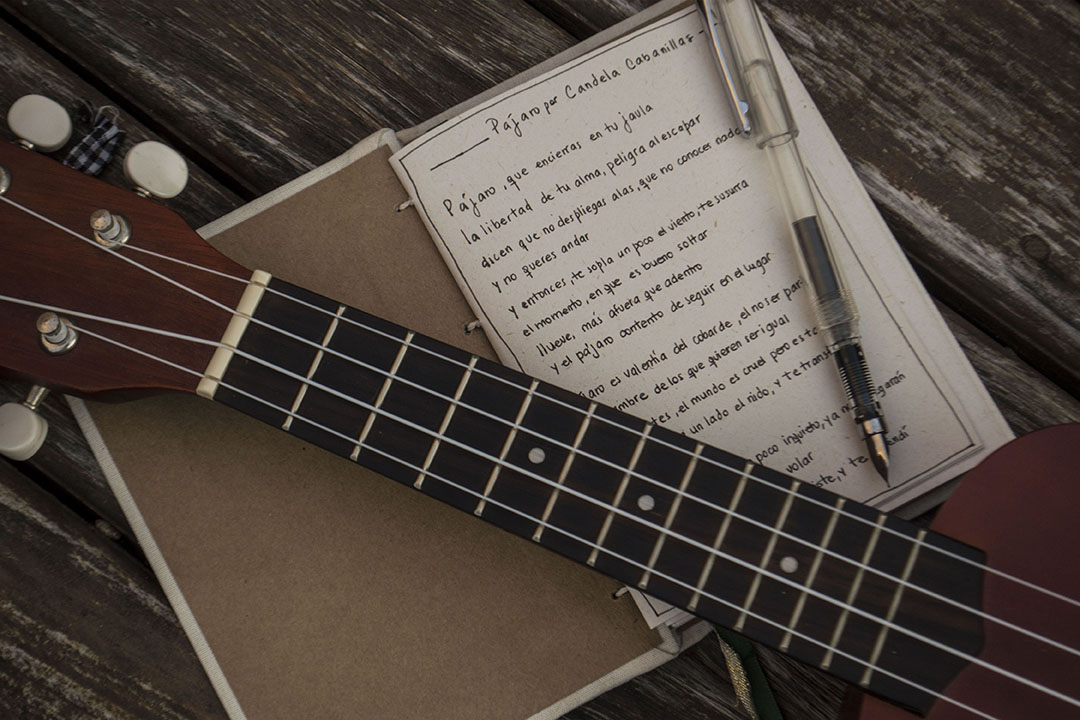 Pájaro por Candela Cabanillas -
Pájaro, que encierras en tu jaula
la libertad de tu alma, peligra al escapar
dicen que no despliegas alas, que no conoces nada
y no quieres andar
y entonces, te sopla un poco el viento, te susurra
el momento, en que es bueno soltar
llueve, más afuera que adentro
y el pájaro contento de seguir en el lugar
es valentía del cobarde, el no ser
de los que quieren ser igual
, el mundo es cruel pero es
un lado el nido, y te
poco inquieto, ya no
volar
, y te